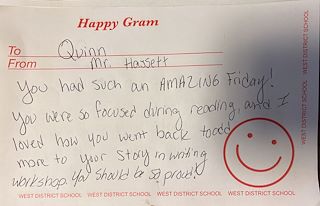 Happy Gram
To Quinn
From Mr. Hassett
You had such an AMAZING Friday!
You were so focused during reading, and I
loved how you went back to add
more to your story in writing
workshop. You should be so proud!
WEST DISTRICT SCHOOL WEST DISTRICT SCHOOL WEST DISTRICT SCHOOL WEST DISTRICT SCHOOL
WEST DISTRICT SCHOOL WEST DISTRICT SCHOOL